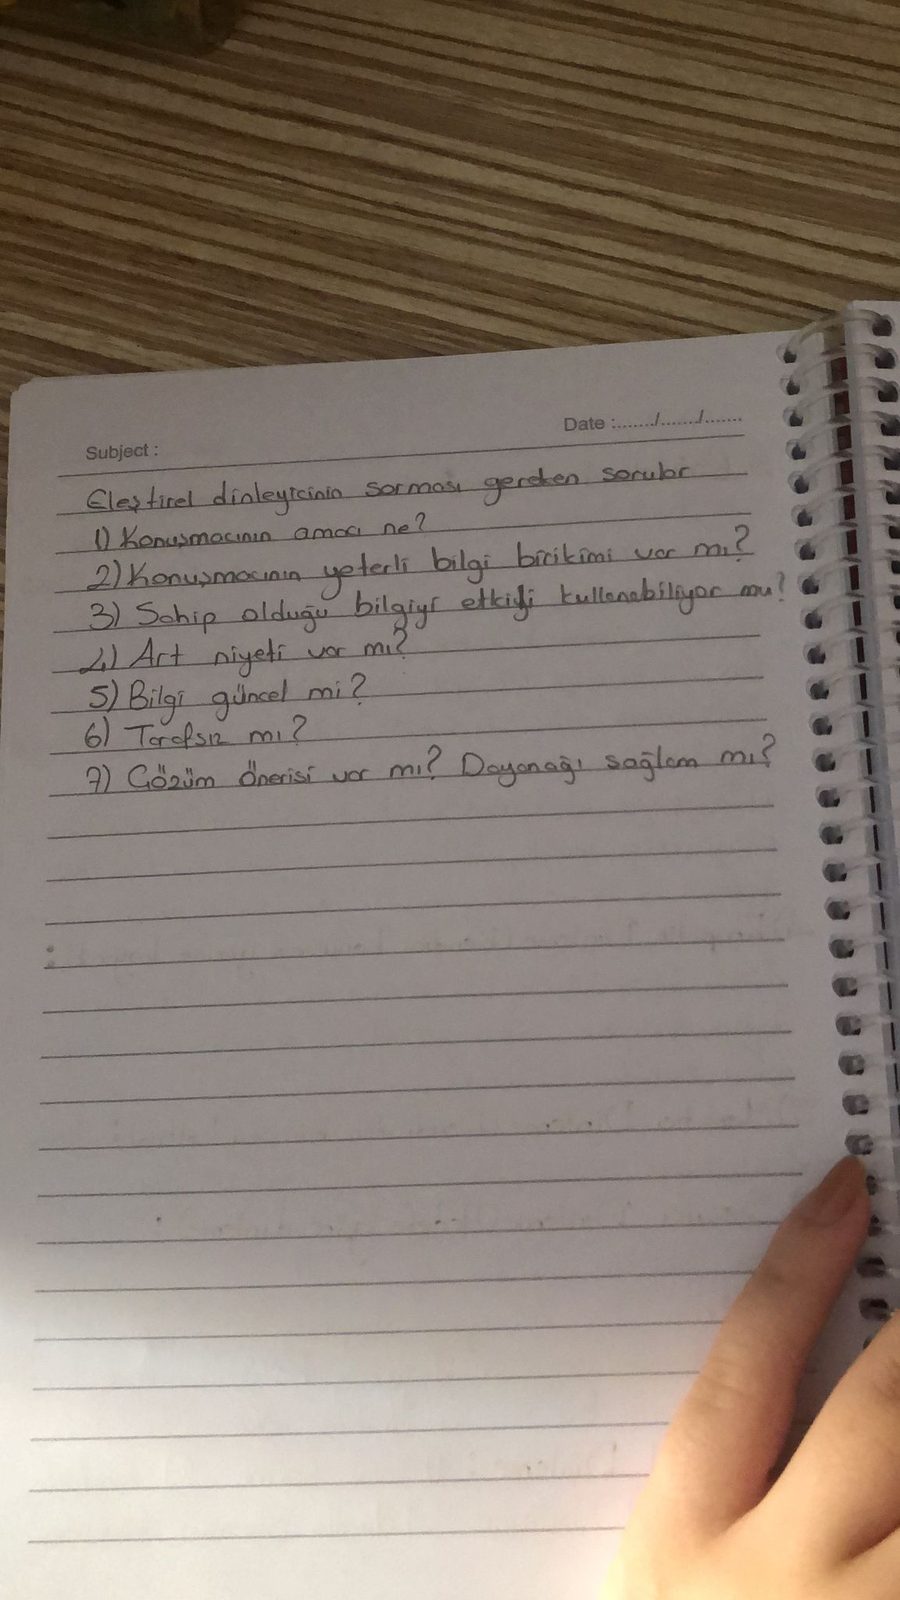 Subject :
Date :......./......./.......
Eleştirel dinleyicinin sorması gereken sorular
1) Konuşmacının amacı ne?
2) Konuşmacının yeterli bilgi birikimi var mı?
3) Sahip olduğu bilgiyi etkili kullanabiliyor mu?
4) Art niyeti var mı?
5) Bilgi güncel mi?
6) Tarafsız mı?
7) Çözüm önerisi var mı? Dayanağı sağlam mı?